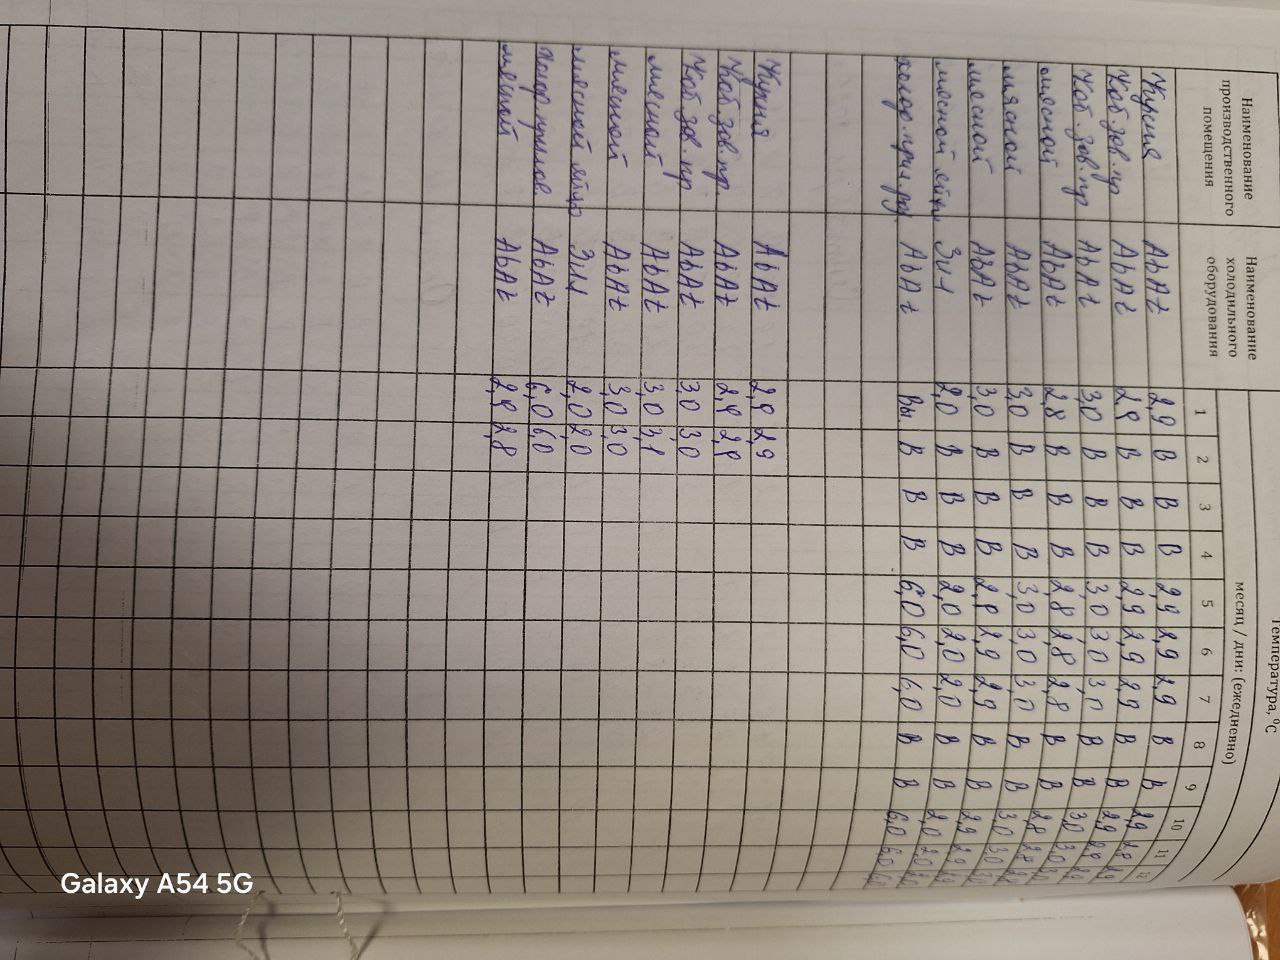 Температура, °С
месяц / дни: (ежедневно)
Наименование производственного помещения Наименование холодильного оборудования 1 2 3 4 5 6 7 8 9 10 11 12
Кухня АbAt 2,9 В В В 2,9 2,9 2,9 В В 2,9 2,9 2,9
Каб. зав. пр АbAt 2,9 В В В 2,9 2,9 2,9 В В 2,9 2,9 2,9
Каб. зав. пр АbAt 3,0 В В В 3,0 3,0 3,0 В В 3,0 3,0 3,0
мясной АbAt 2,8 В В В 2,8 2,8 2,8 В В 2,8 2,8
мясной АbAt 3,0 В В В 3,0 3,0 3,0 В В 3,0 3,0 3,0
мясной АbAt 3,0 В В В 2,9 2,9 2,9 В В 2,9 2,9 2,9
мясной яйцо Зил 2,0 В В В 2,0 2,0 2,0 В В 2,0 2,0 2,0
АbAt Вы. В В В 6,0 6,0 6,0 В В 6,0 6,0 6,0
Кухня АbAt 2,9 2,9
Каб. зав. пр. АbAt 2,8 2,8
Каб. зав. пр АbAt 3,0 3,0
мясной АbAt 3,0 3,1
мясной АbAt 3,0 3,0
мясной яйцо Зил 2,0 2,0
АbAt 6,0 6,0
мясной АbAt 2,8 2,8
Galaxy A54 5G